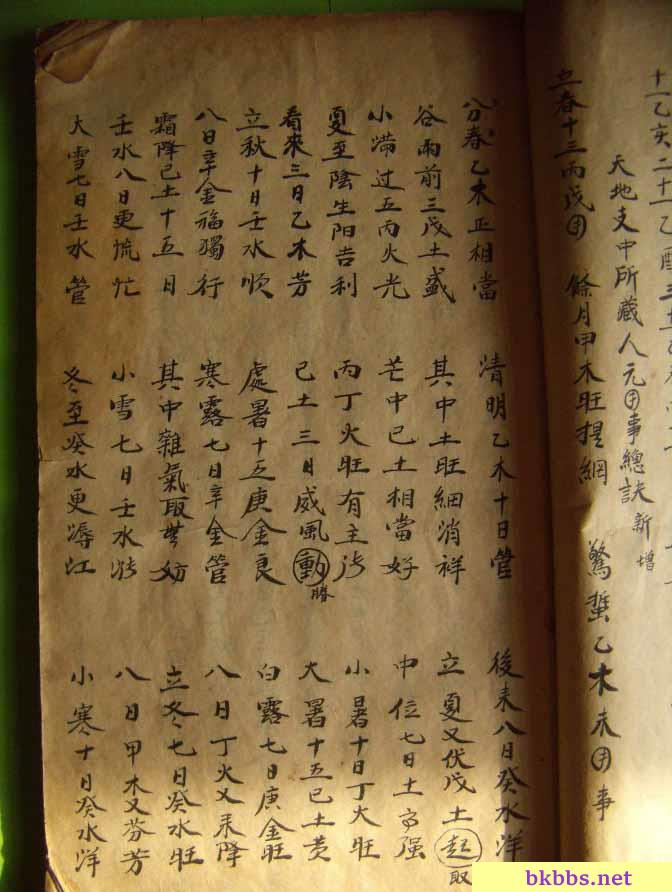 十一乙亥二十一乙酉三
天地支中所藏人元用事總訣 新增
立春十三丙戊用 餘月甲木旺提綱 驚蟄乙木未用事
分春乙木正相當 清明乙木十日管 後来八日癸水洋
谷雨前三戊土盛 其中土旺細消祥 立夏又伏戊土起 取
小滿过五丙火光 芒中己土相當好 中位七日土高强
夏至陰生阳吉利 丙丁火旺有主 小暑十日丁火旺
看來三日乙木芳 己土三日威風動 勝 大暑十五己土黄
立秋十日壬水順 處暑十五庚金良 白露七日庚金旺
八日辛金福獨行 寒露七日辛金管 八日丁火又来降
霜降己土十五日 其中雜氣取妨 立冬七日癸水旺
壬水八日更慌忙 小雪七日壬水 八日甲木又芬芳
大雪七日壬水管 冬至癸水更江 小寒十日癸水洋
bkbbs.net